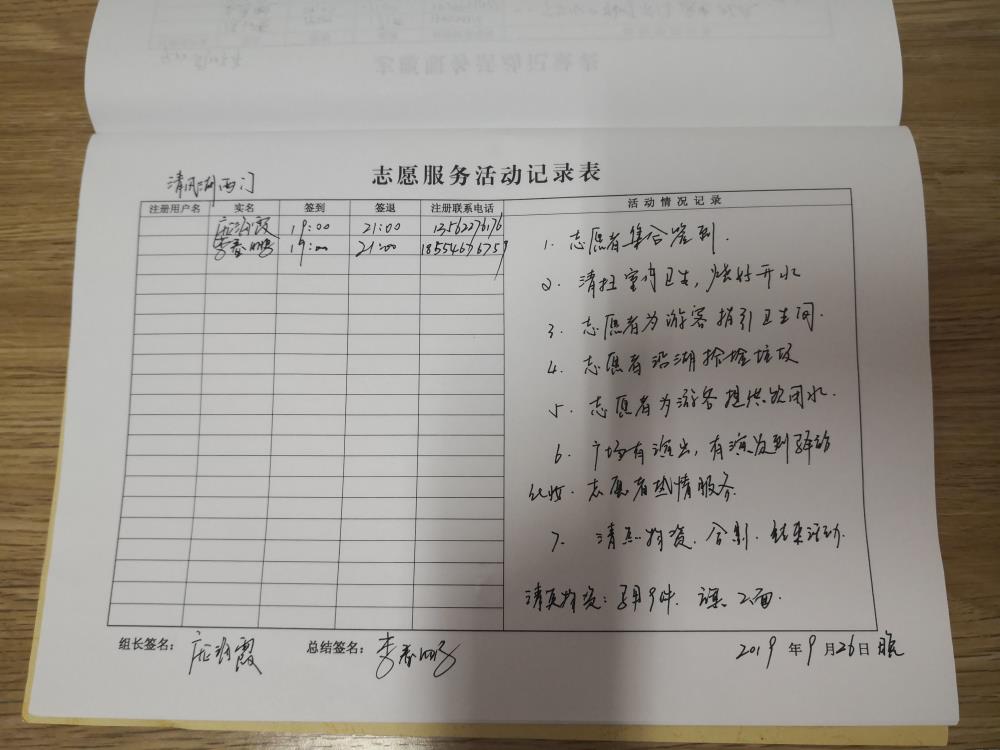 志愿服务活动记录表
清风湖西门
注册用户名 实名 签到 签退 注册联系电话 活动情况记录
19:00 21:00
李春鹏 19:00 21:00
1. 志愿者集合签到.
2. 清扫室内卫生, 烧好开水
3. 志愿者为游客指引卫生间.
4. 志愿者沿湖捡拾垃圾
5. 志愿者为游客提供饮用水.
6. 广场有演出, 有演员到驿站
化妆. 志愿者热情服务.
7. 清点物资. 合影. 结束活动.
清点物资: 9件. 旗2面.
组长签名: 总结签名: 李春鹏
2019年9月26日 晚